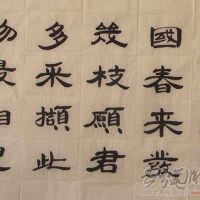 國春来發
幾枝願君
多采擷此
最相